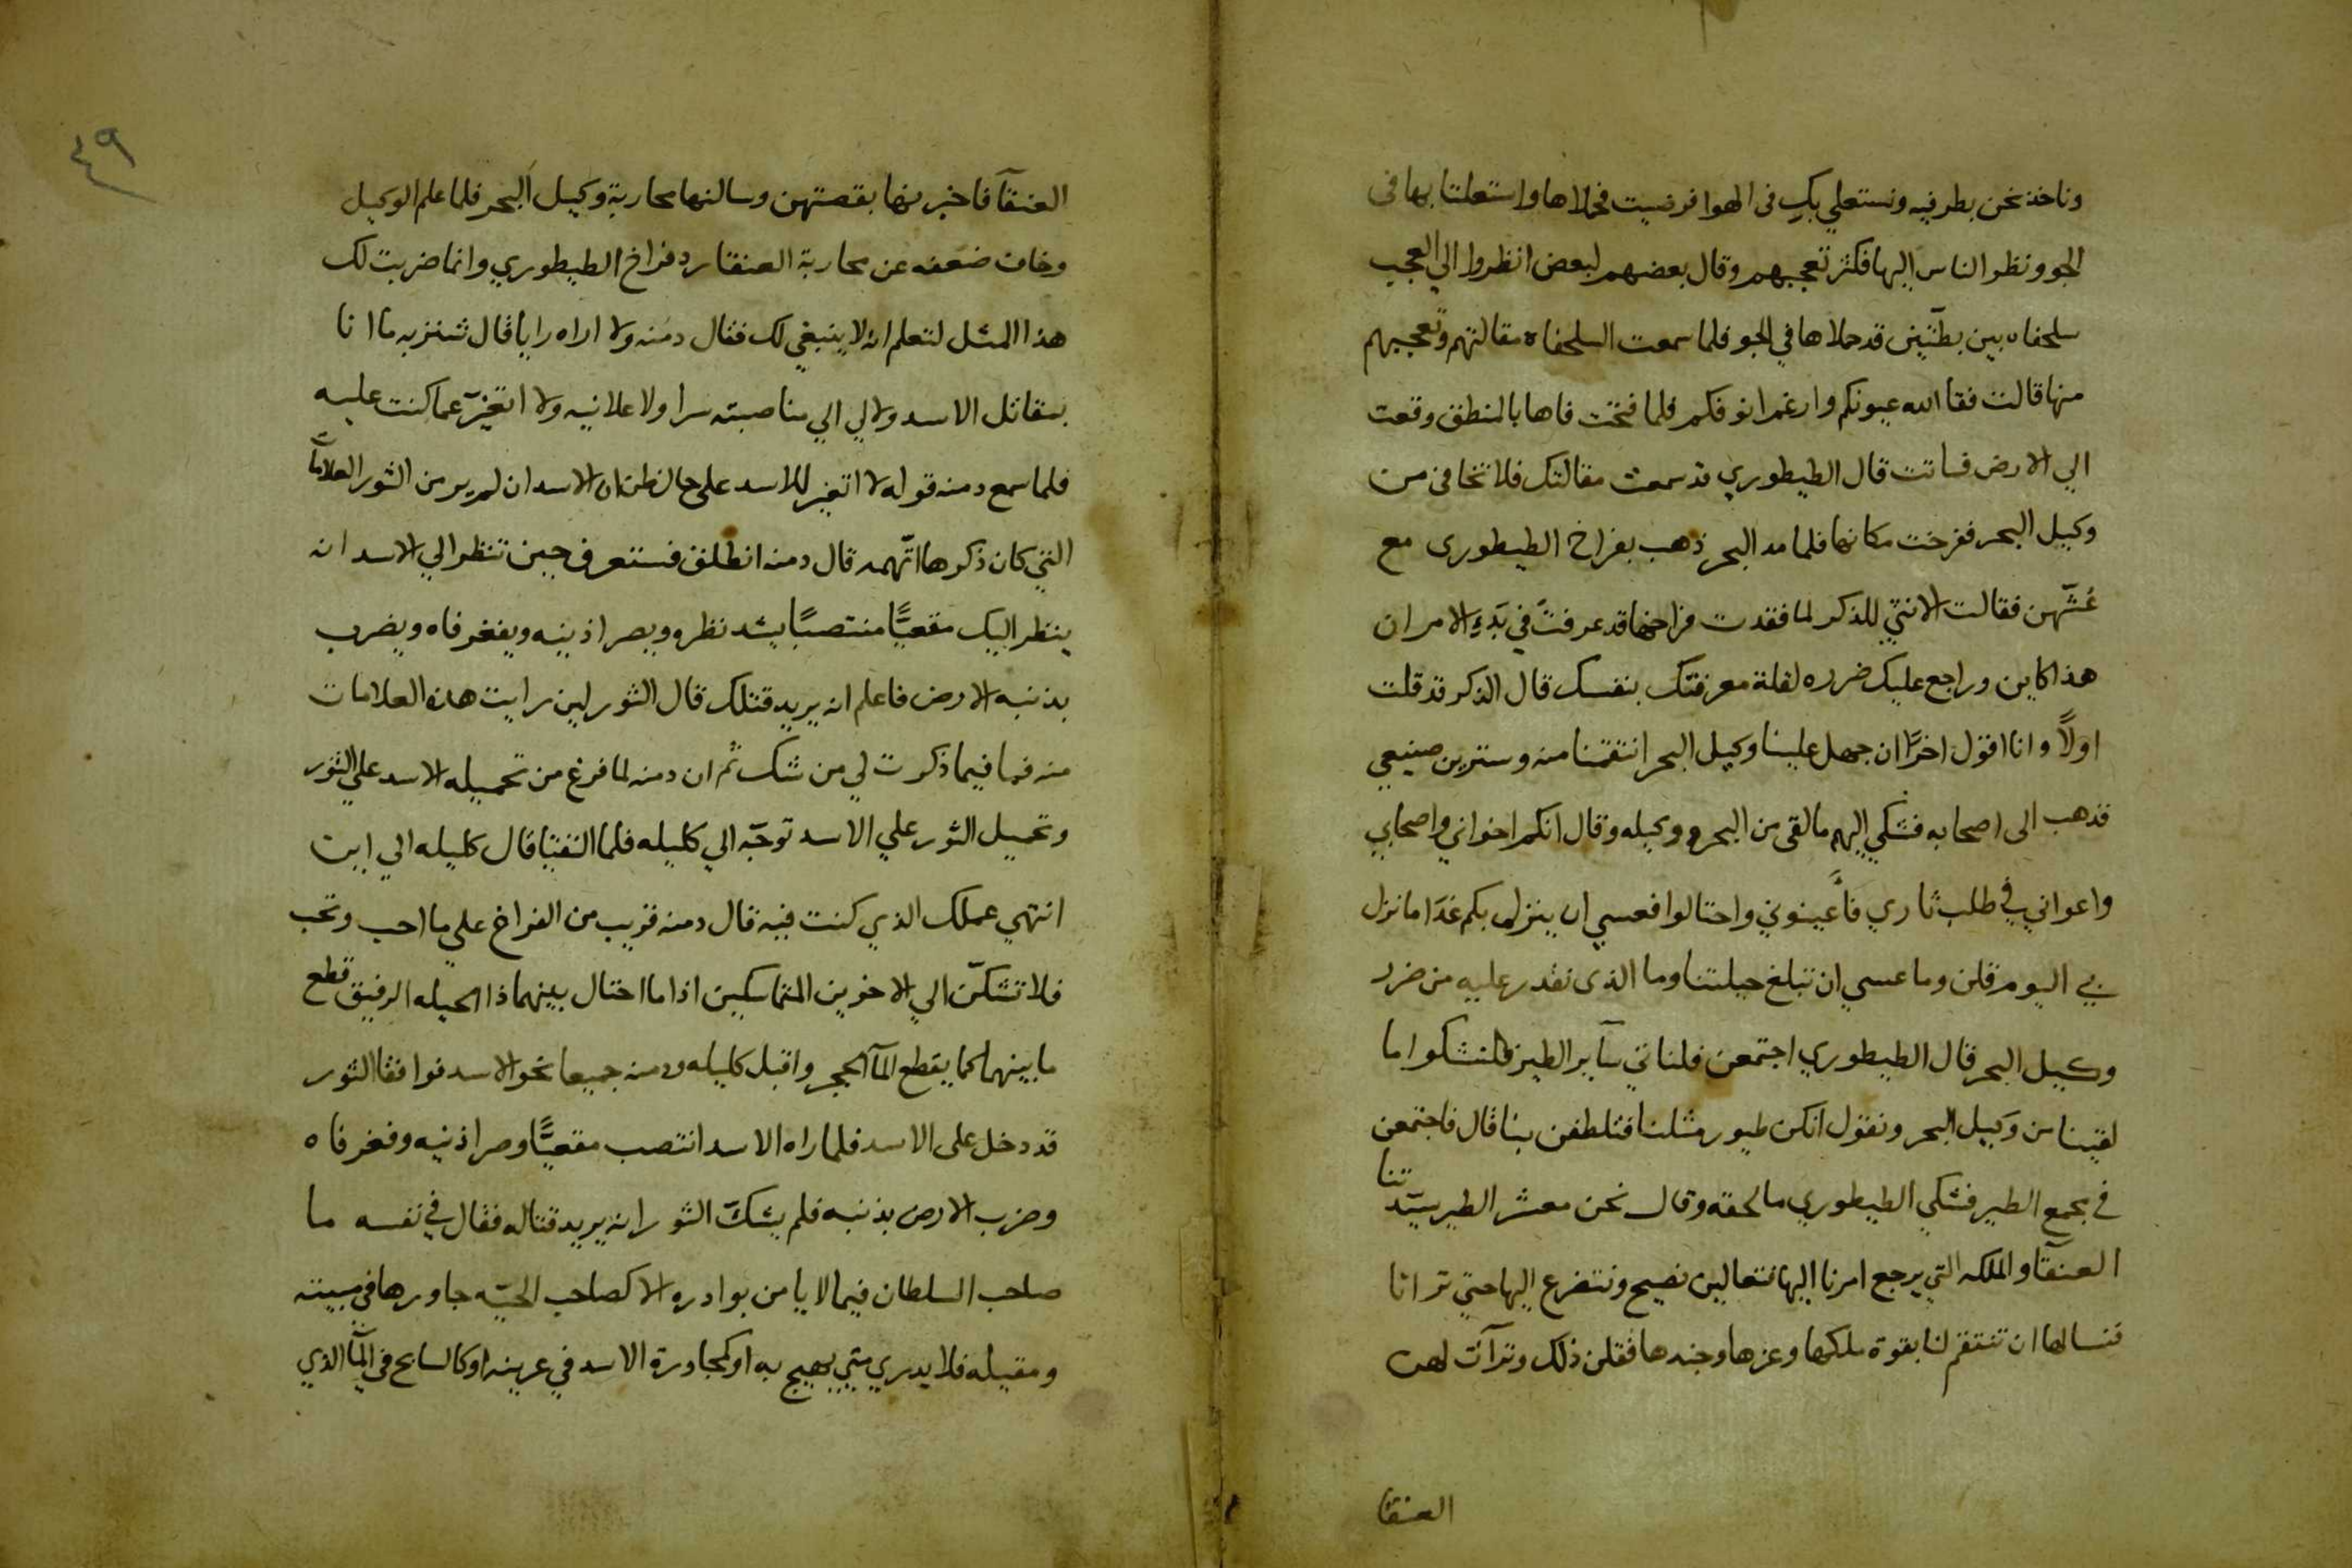 وناخذ نحن بطرفيه ونستعلي بك في الهوا فرضيت فحملاها واستعلتا بها في
الجو ونظر الناس اليها فكثر تعجبهم وقال بعضهم لبعض انظروا الي العجب
سلحفاه بين بطتين قد حملاها في الجو فلما سمعت السلحفاه مقالتهم وتعجبهم
منها قالت فقا الله عيونكم وارغم انوفكم فلما فتحت فاها بالمنطق وقعت
الي الارض فماتت قال الطيطوري قد سمعت مقالتك فلا تخافي من
وكيل البحر ففرخت مكانها فلما مد البحر ذهب بفراخ الطيطورى مع
عُشّهن فقالت الانثي للذكر لما فقدت فراخها قد عرفتُ في بَدءِ الامر ان
هذا كاين وراجع عليك ضرره لقلة معرفتك بنفسك قال الذكر قد قلت
اولاً وانا اقول اخرًا ان جهل علينا وكيل البحر انتقمنا منه وسترين صنيعي
فذهب الى اصحابه فشكي اليهم ما لقى من البحر ووكيله وقال انكم اخواني واصحابي
واعواني في طلب ثاري فأعينوني واحتالوا فعسي ان ينزل بكم غدًا ما نزل
بي اليوم قلن وما عسي ان تبلغ حيلتنا وما الذى نقدر عليه من ضرر
وكيل البحر قال الطيطوري اجتمعن فلناتي سآير الطير فلنشكوا ما
لقينا من وكيل البحر ونقول انكن طيور مثلنا فتلطفن بنا قال فاجتمعن
في مجمع الطير فشكي الطيطوري ما لحقه وقال نحن معشر الطير سيّدتنا
العنقآ والملكه التي يرجع امرنا اليها فتعالين نصيح ونتضرع اليها حتي ترانا
فنسالها ان تنتقم لنا بقوة ملكها وعزها وجندها ففعلن ذلك وترآت لهن
العنقا
٤٩
العنقآ فاخبرنها بقصتهن وسالنها محاربة وكيل البحر فلما علم الوكيل
وخاف ضعفه عن محاربة العنقا رد فراخ الطيطوري وانما ضربت لك
هذا المثل لتعلم انه لا ينبغي لك فقال دمنه ولا اراه رايا قال شنزبه ما انا
بمقاتل الاسد ولا لي الي مناصبته سرا ولا علانيه ولا اتغيرّ عما كنت عليه
فلما سمع دمنه قوله لا اتغير للاسد على حال ظن ان الاسد ان لم ير من الثور العلامات
التي كان ذكرها اتّهمه قال دمنه انطلق فستعرف حين تنظر الي الاسد انه
ينظر اليك مقعيًّا منتصبًا يشد نظره ويصر اذنيه ويفغر فاه ويضرب
بذنبه الارض فاعلم انه يريد قتلك قال الثور لين رايت هذه العلامات
منه فما فيما ذكرت لي من شك ثم ان دمنه لما فرغ من تحميله الاسد علي الثور
وتحميل الثور علي الاسد توجّه الي كليله فلما التقيا قال كليله الي اين
انتهي عملك الذي كنت فيه قال دمنه قريب من الفراغ علي ما احب وتحب
فلا تشكّن الي الاخوين المتماسكين اذا ما احتال بينهما ذا الحيله الرفيق قطع
ما بينهما كما يقطع المآ الحجر واقبل كليله ودمنه جميعا نحو الاسد فوافقا الثور
قد دخل على الاسد فلما راه الاسد انتصب مقعيًّا وصر اذنيه وفغر فاه
وضرب الارض بذنبه فلم يشكّ الثور انه يريد قتاله فقال في نفسه ما
صاحب السلطان فيما لا يامن بوادره الا كصاحب الحيّه جاورها في مبيته
ومقيله فلا يدري متي يهيج به او كمجاورة الاسد في عرينه او كالسابح في المآ الذي